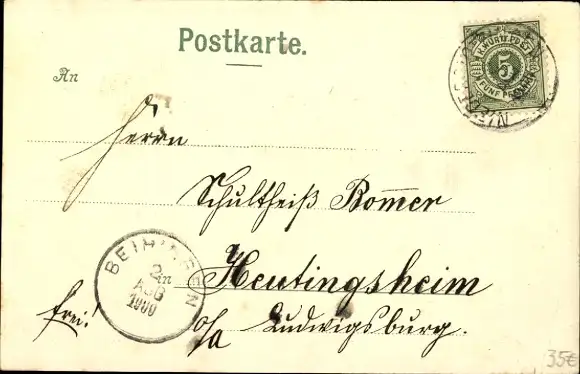 Postkarte.
K. WÜRTT. POST
5
FÜNF PFENNIG
An
Herrn
Schultheiß Bommer
Heutingsheim
o/a Ludwigsburg.
frei!
BEIHINGEN
2
AUG
1900
35€